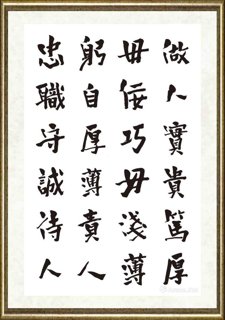 做人實貴篤厚
毋佞巧毋淺薄
躬自厚薄責人
忠職守誠待人